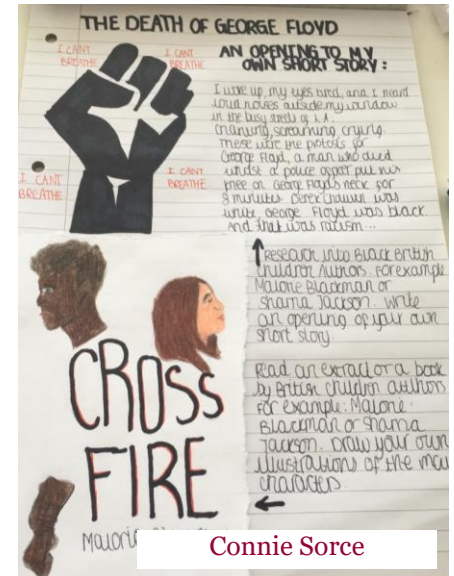 THE DEATH OF GEORGE FLOYD
I CANT
BREATHE
I CANT
BREATHE
AN OPENING TO MY
OWN SHORT STORY:
I woke up, my eyes tired, and I heard
loud noises outside my window
in the busy streets of L.A.
Chanting, screaming, crying.
These were the protests for
George Floyd, a man who died
whilst a police officer put his
knee on George Floyds neck for
8 minutes. Derek Chauvin was
white, George Floyd was black.
And that was racism...
I CANT
BREATHE
I CANT
BREATHE
Research into Black British
Children Authors. For example
Malorie Blackman or
Sharna Jackson. Write
an opening of your own
short story.
CROSS
FIRE
Read an extract or a book
by British children authors
for example: Malorie
Blackman or Sharna
Jackson. Draw your own
illustrations of the
character.
Connie Sorce